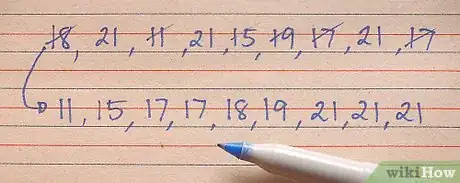 18, 21, 11, 21, 15, 19, 17, 21, 17
11, 15, 17, 17, 18, 19, 21, 21, 21
wikiHow